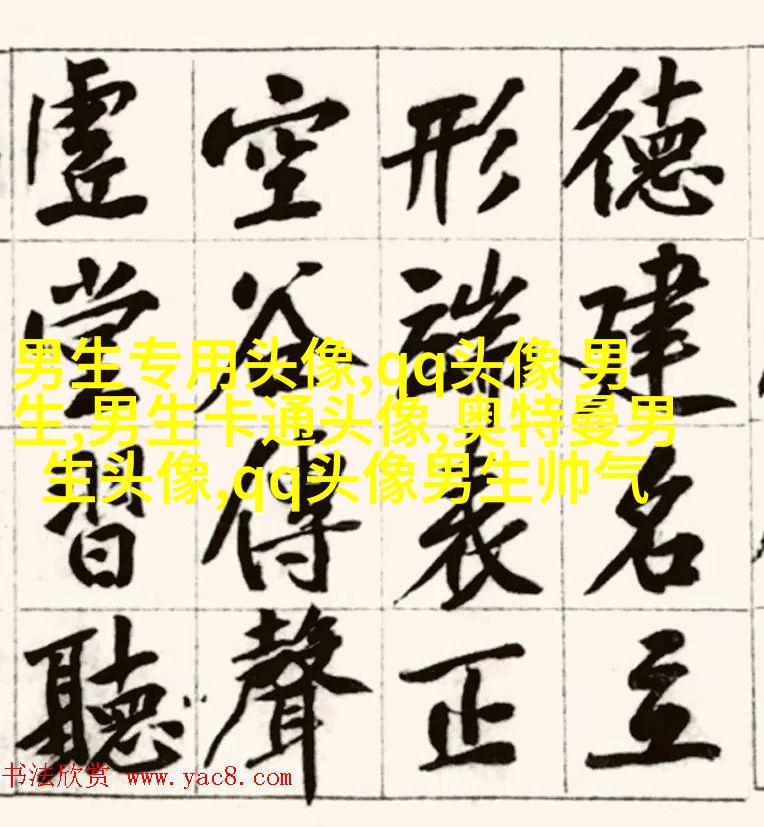 德建名立
形端表正
空谷传聲
虛堂習聽
男生专用头像,qq头像 男
生,男生卡通头像,奥特曼男
生头像,qq头像男生帅气
书法欣赏 www.yac8.com